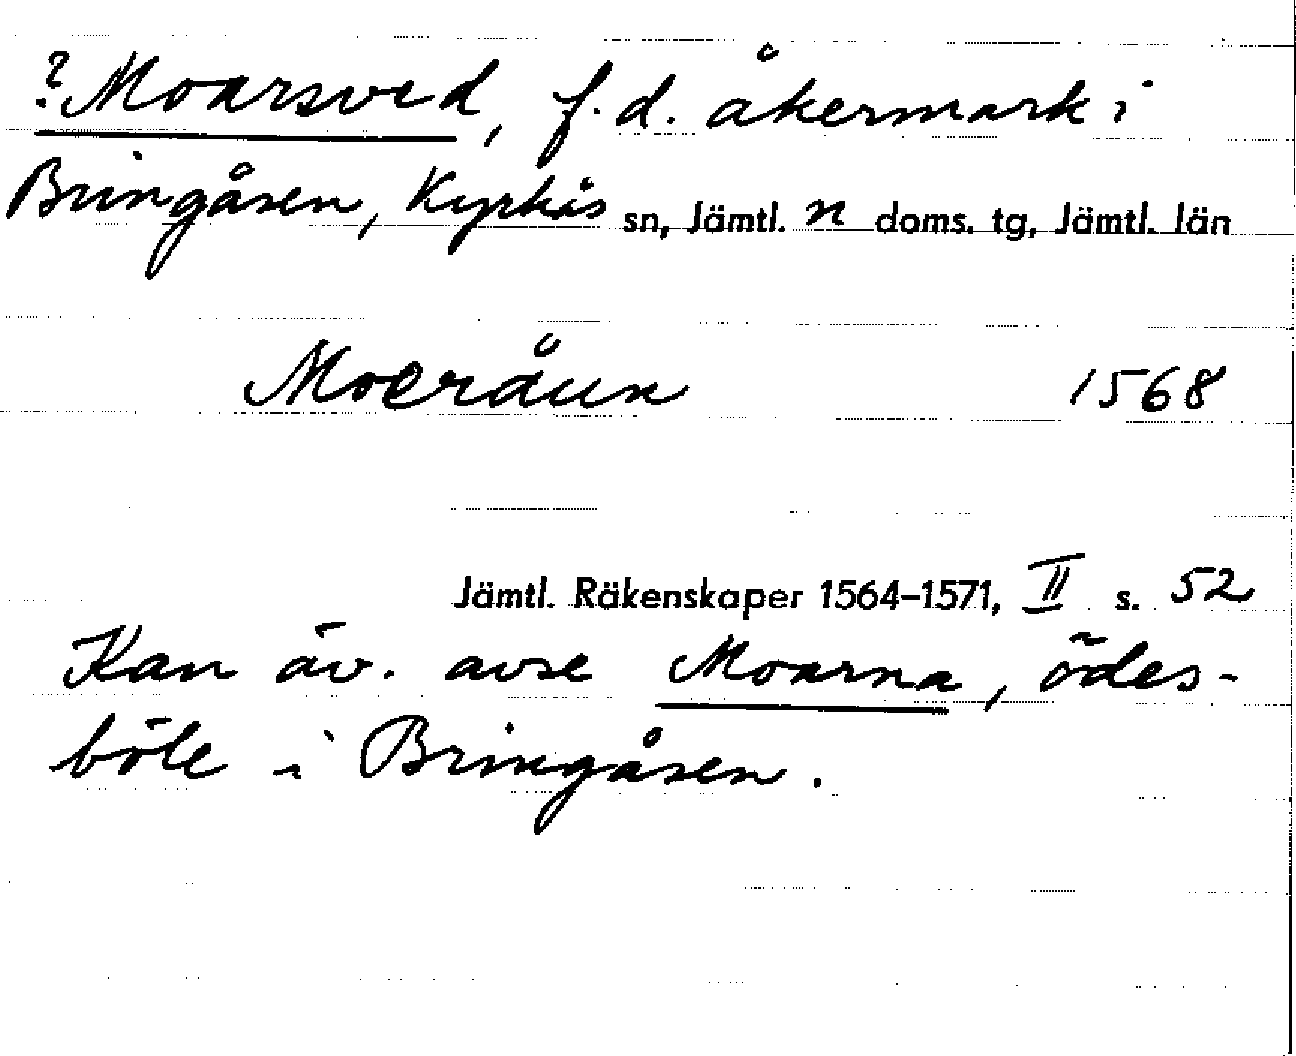 ?Moarsved, f.d. åkermark i
Bringåsen, Kyrkås sn, Jämtl. n doms. tg, Jämtl. län
Moeråun 1568
Jämtl. Räkenskaper 1564–1571, II s. 52
Kan äv. avse Moarna, ödes-
böle i Bringåsen.